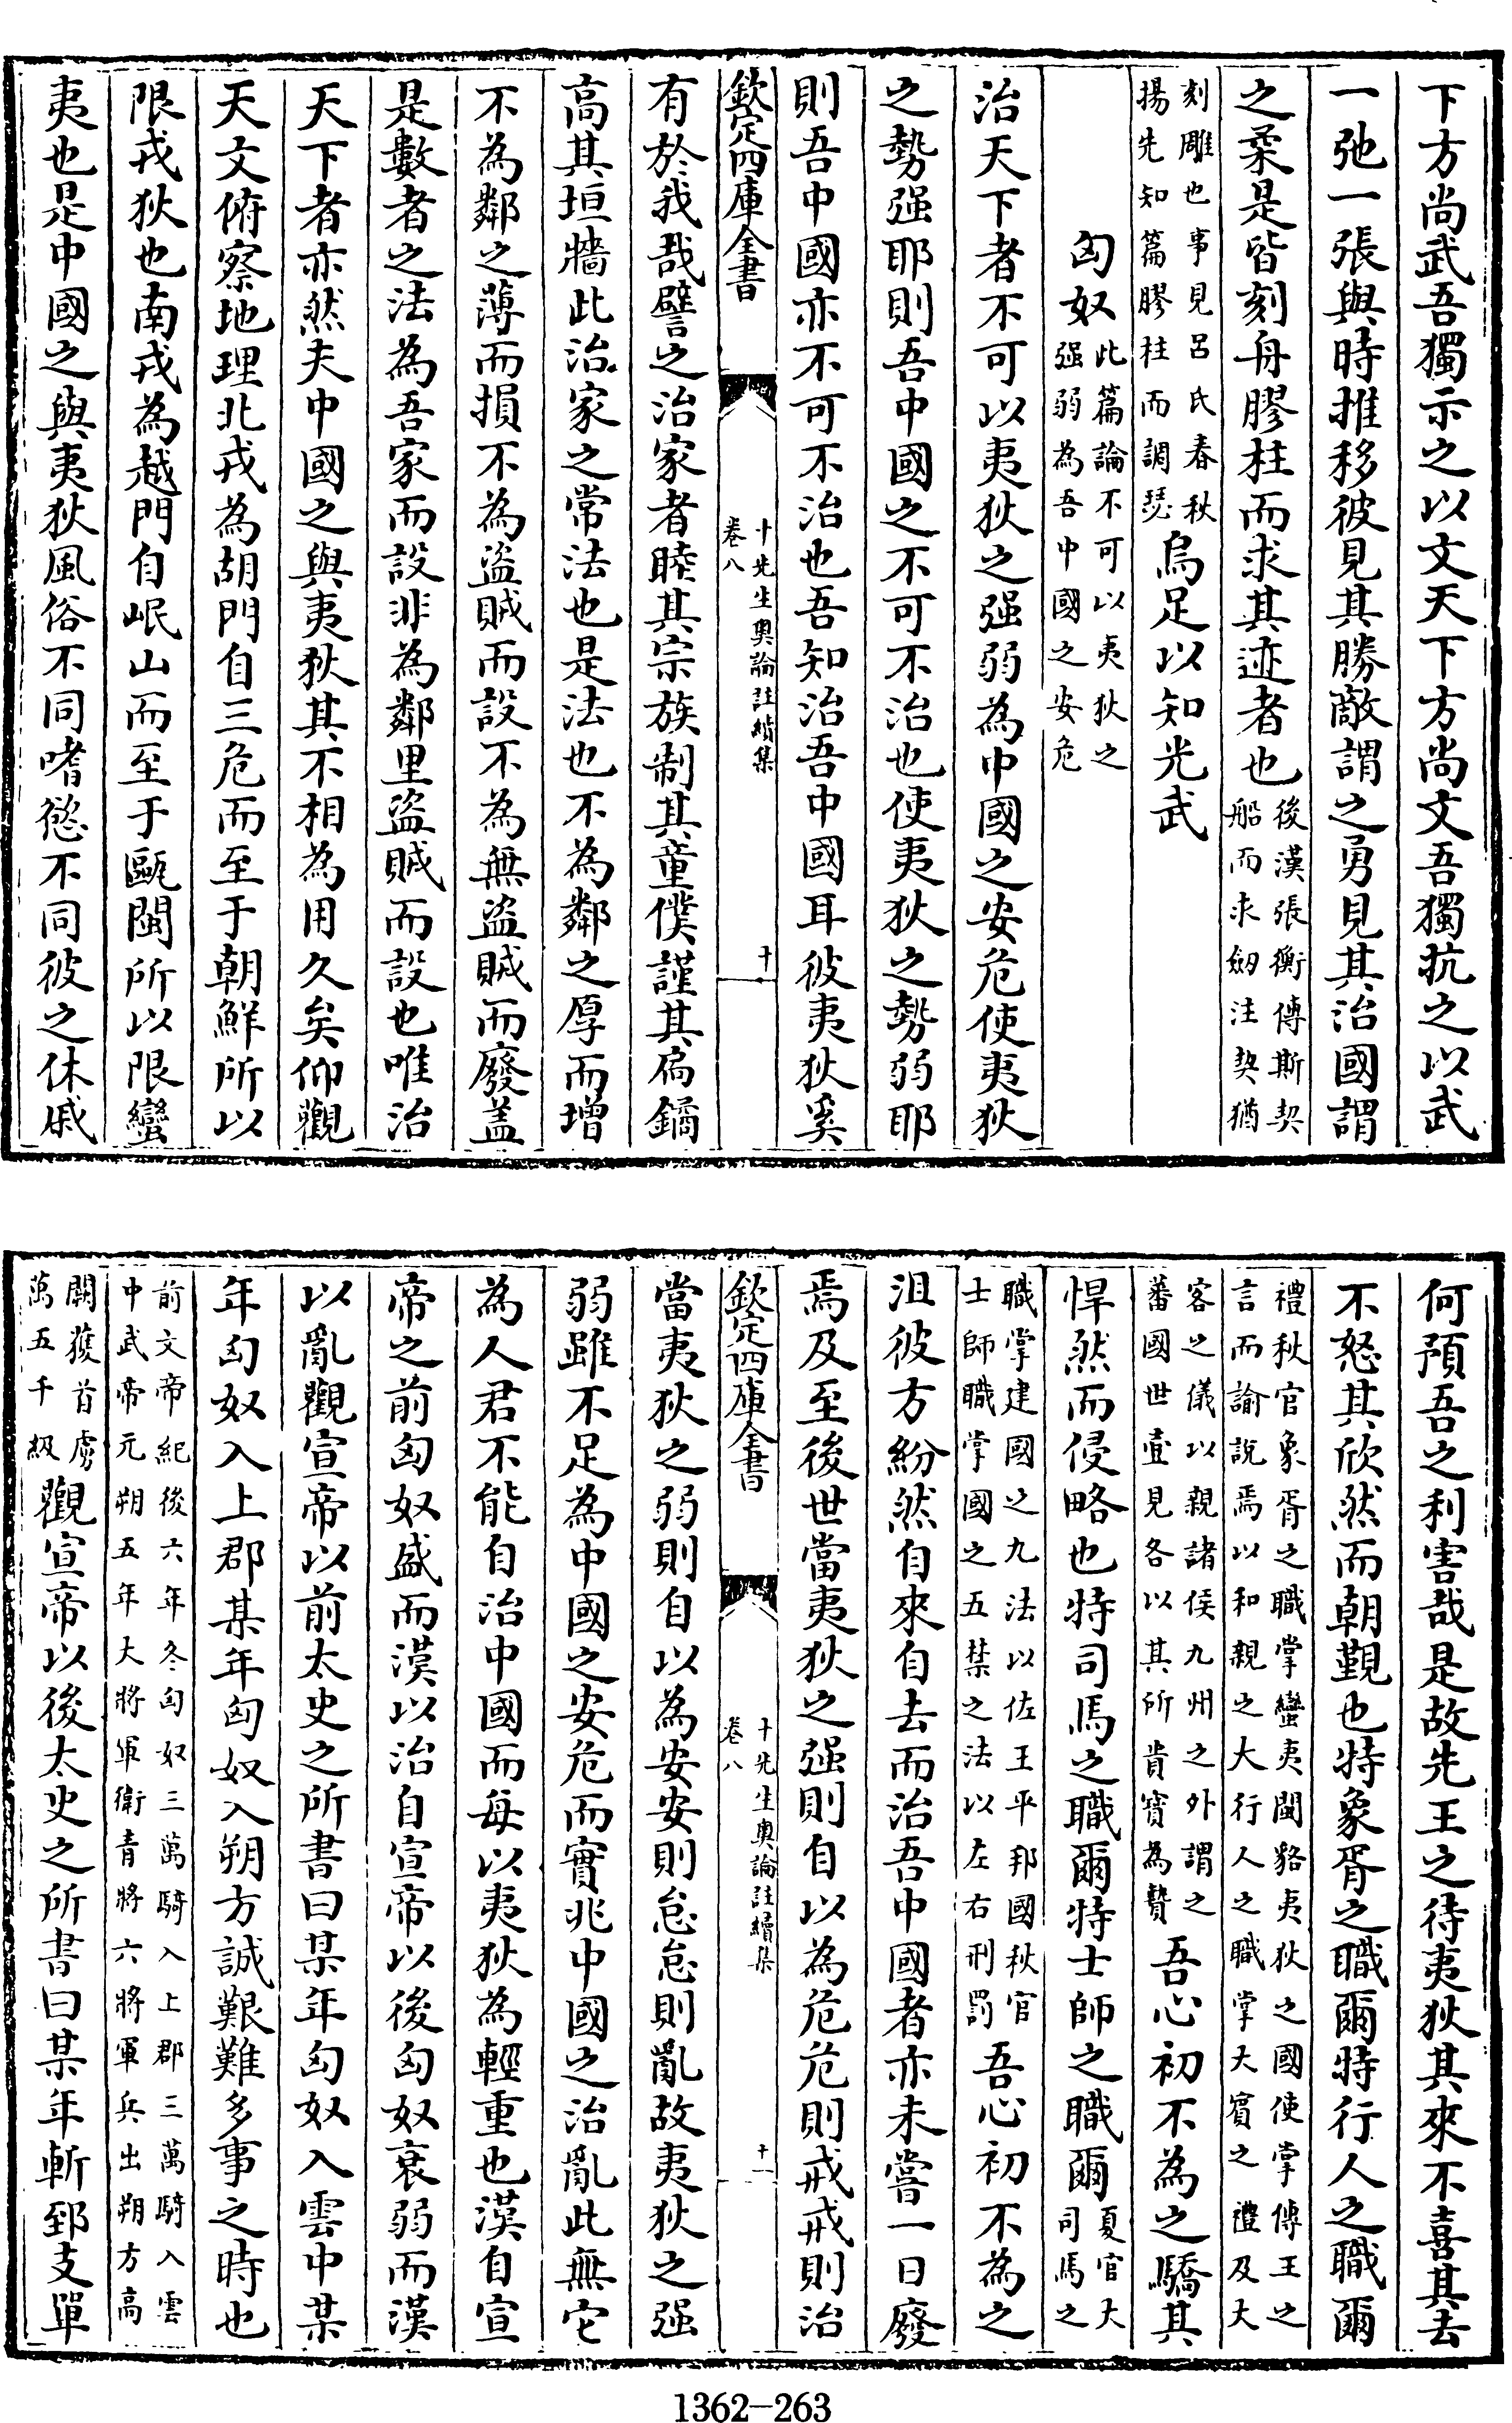 下方尚武吾獨示之以文天下方尚文吾獨抗之以武
一弛一張與時推移彼見其勝敵謂之勇見其治國謂
之柔是皆刻舟膠柱而求其迹者也後漢張衡傳斯契船而求劒注契猶
刻雕也事見呂氏春秋揚先知篇膠柱而調瑟烏足以知光武
匈奴此篇論不可以夷狄之强弱為吾中國之安危
治天下者不可以夷狄之强弱為中國之安危使夷狄
之勢强耶則吾中國之不可不治也使夷狄之勢弱耶
則吾中國亦不可不治也吾知治吾中國耳彼夷狄奚
欽定四庫全書 十先生奥論註續集 卷八 十
有於我哉譬之治家者睦其宗族制其童僕謹其扄鐍
高其垣牆此治家之常法也是法也不為鄰之厚而增
不為鄰之薄而損不為盜賊而設不為無盜賊而廢盖
是數者之法為吾家而設非為鄰里盜賊而設也唯治
天下者亦然夫中國之與夷狄其不相為用久矣仰觀
天文俯察地理北戎為胡門自三危而至于朝鮮所以
限戎狄也南戎為越門自岷山而至于甌閩所以限蠻
夷也是中國之與夷狄風俗不同嗜慾不同彼之休戚
何預吾之利害哉是故先王之待夷狄其來不喜其去
不怒其欣然而朝覲也特象胥之職爾特行人之職爾
禮秋官象胥之職掌蠻夷閩貉夷狄之國使掌傳王之言而諭說焉以和親之大行人之職掌大賓之禮及大
客之儀以親諸侯九州之外謂之蕃國世壹見各以其所貴寶為贄吾心初不為之驕其
悍然而侵略也特司馬之職爾特士師之職爾夏官大司馬之
職掌建國之九法以佐王平邦國秋官士師職掌國之五禁之法以左右刑罰吾心初不為之
沮彼方紛然自來自去而治吾中國者亦未嘗一日廢
焉及至後世當夷狄之强則自以為危危則戒戒則治
欽定四庫全書 十先生奥論註續集 卷八 十一
當夷狄之弱則自以為安安則怠怠則亂故夷狄之强
弱雖不足為中國之安危而實兆中國之治亂此無它
為人君不能自治中國而每以夷狄為輕重也漢自宣
帝之前匈奴盛而漢以治自宣帝以後匈奴衰弱而漢
以亂觀宣帝以前太史之所書曰某年匈奴入雲中某
年匈奴入上郡某年匈奴入朔方誠艱難多事之時也
前文帝紀後六年冬匈奴三萬騎入上郡三萬騎入雲中武帝元朔五年大將軍衛青將六將軍兵出朔方高
闕獲首虜萬五千級觀宣帝以後太史之所書曰某年斬郅支單
1362-263